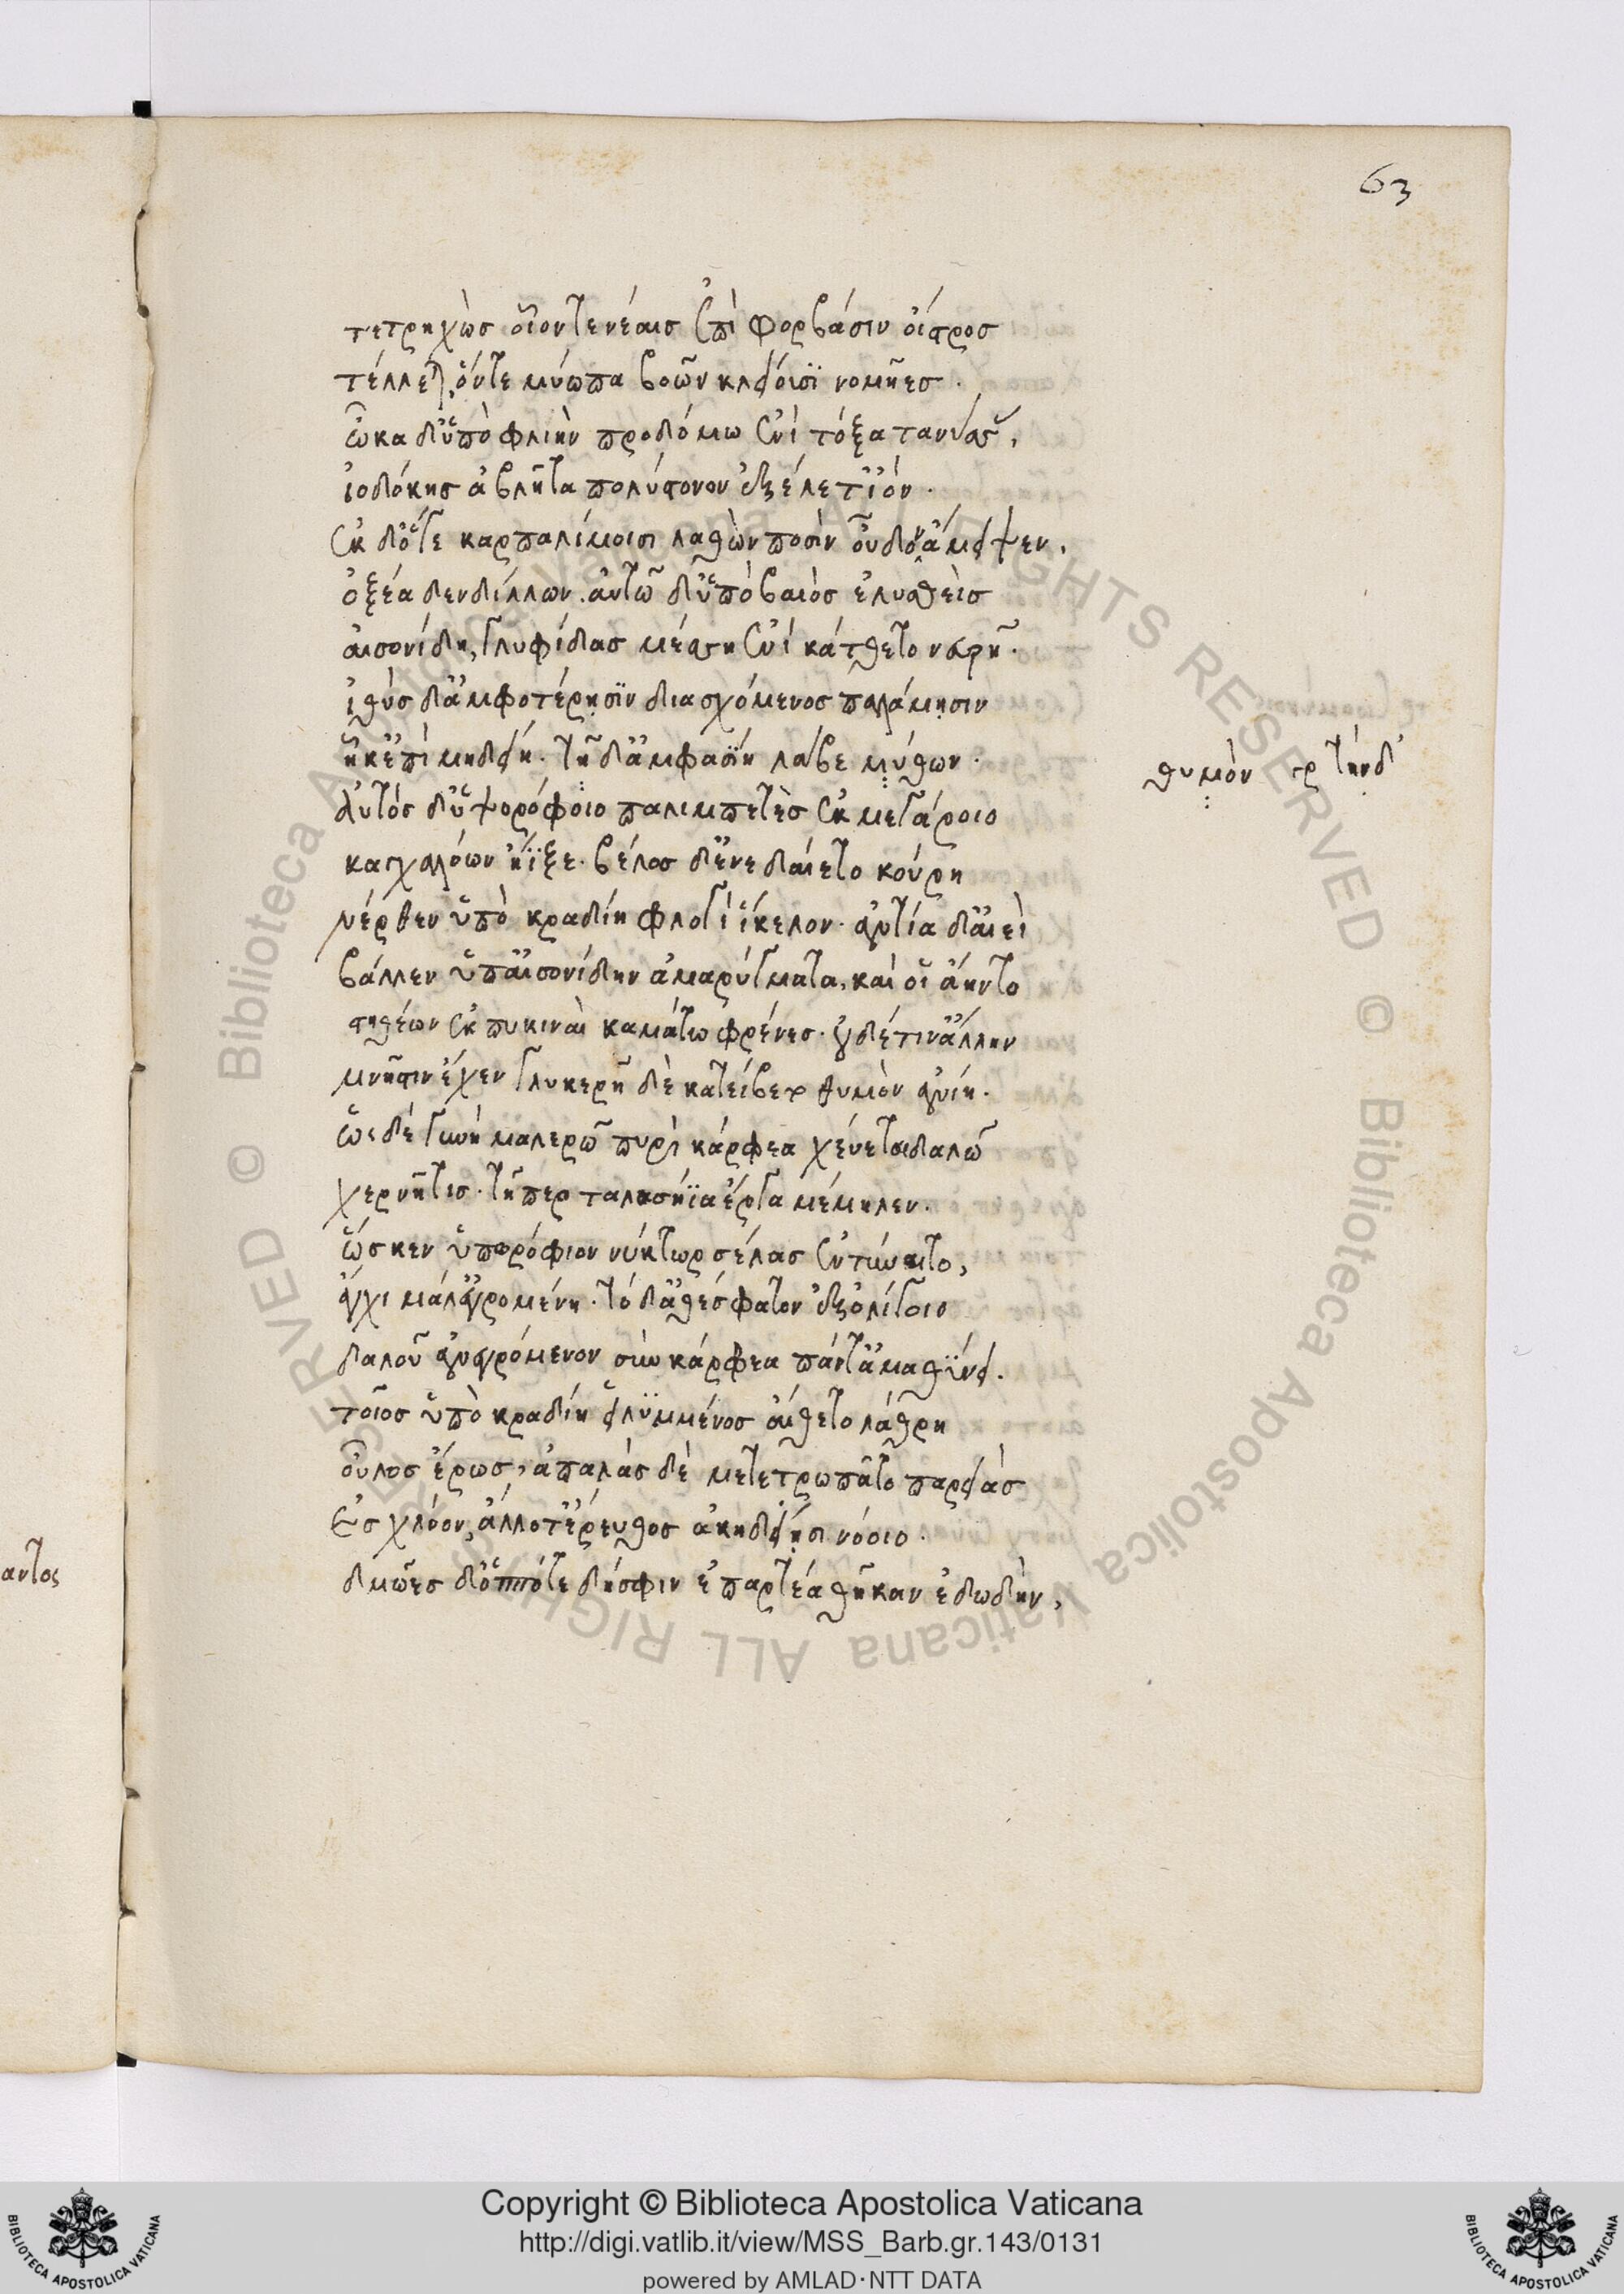 63
τετρηχὼσ οἷον τε νέαισ ἐπὶ φορβάσιν οἶστροσ
τέλλεται, ὅν τε μύωπα βοῶν κλείουσϊ νομῆεσ.
ὦκα δ' ὑπὸ φλιὴν προδόμω ἐνὶ τόξα τανύσας,
ἰοδόκησ ἀβλῆτα πολύστονον ἐξέλετ' ἰόν.
ἐκ δ' ὅγε καρπαλίμοισι λαθὼν ποσὶν οὐδὸν ἄμειψεν,
ὀξέα δενδίλλων. αὐτῶ δ' ὑπὸ βαιὸσ ἐλυσθεὶσ
αἰσονίδη, γλυφίδασ μέσση ἐνὶ κάτθετο νευρῆ.
ἰθὺσ δ' ἀμφοτέρῃσϊν διασχόμενοσ παλάμῃσιν
ἧκ' ἐπὶ μηδείη. τὴν δ' ἀμφασΐη λάβε μύθων.
θυμόν γρ τήνδ'
αὐτόσ δ' ὑψορόφοιο παλιμπετὲσ ἐκ μεγάροιο
καγχαλόων ἤϊξε. βέλοσ δ' ἐνεδαίετο κούρη
νέρθεν ὑπὸ κραδίη φλογὶ εἴκελον. ἀντία δ' αἰεὶ
βάλλεν ὑπ' αἰσονίδην ἀμαρύγματα, καί οἱ ἄηντο
στηθέων ἐκ πυκιναὶ καμάτω φρένεσ. οὐδέ τιν' ἄλλην
μνῆστιν ἔχεν γλυκερῆ δὲ κατείβετο θυμὸν ἀνίη.
ὡς δὲ γυνὴ μαλερῶ πυρὶ κάρφεα χεύετο δαλῶ
χερνῆτισ. τῆπερ ταλασήϊα ἔργα μέμηλεν.
ὥσκεν ὑπωρόφιον νύκτωρ σέλασ ἐντύναιτο,
ἄγχι μάλ' ἐγρομένη. τὸ δ' ἀθέσφατον ἐξ ὀλίγοιο
δαλοῦ ἀνεγρόμενον σὺν κάρφεα πάντ' ἀμαθΰνει.
τοῖοσ ὑπὸ κραδίη εἰλϋμμένοσ αἴθετο λάθρη
οὖλοσ ἔρωσ, ἁπαλὰσ δὲ μετετρωπᾶτο παρειὰσ
ἐσ χλόον, ἄλλοτ' ἔρευθοσ ἀκηδείῃσι νόοιο.
δμῶεσ δ' ὁππότε δήσφιν ἐπαρτέα θῆκαν ἐδωδὴν,
αντος
Copyright © Biblioteca Apostolica Vaticana
http://digi.vatlib.it/view/MSS_Barb.gr.143/0131
powered by AMLAD·NTT DATA
BIBLIOTECA APOSTOLICA VATICANA
BIBLIOTECA APOSTOLICA VATICANA
© Biblioteca Apostolica Vaticana ALL RIGHTS RESERVED © Biblioteca Apostolica Vaticana ALL RIGHTS RESERVED